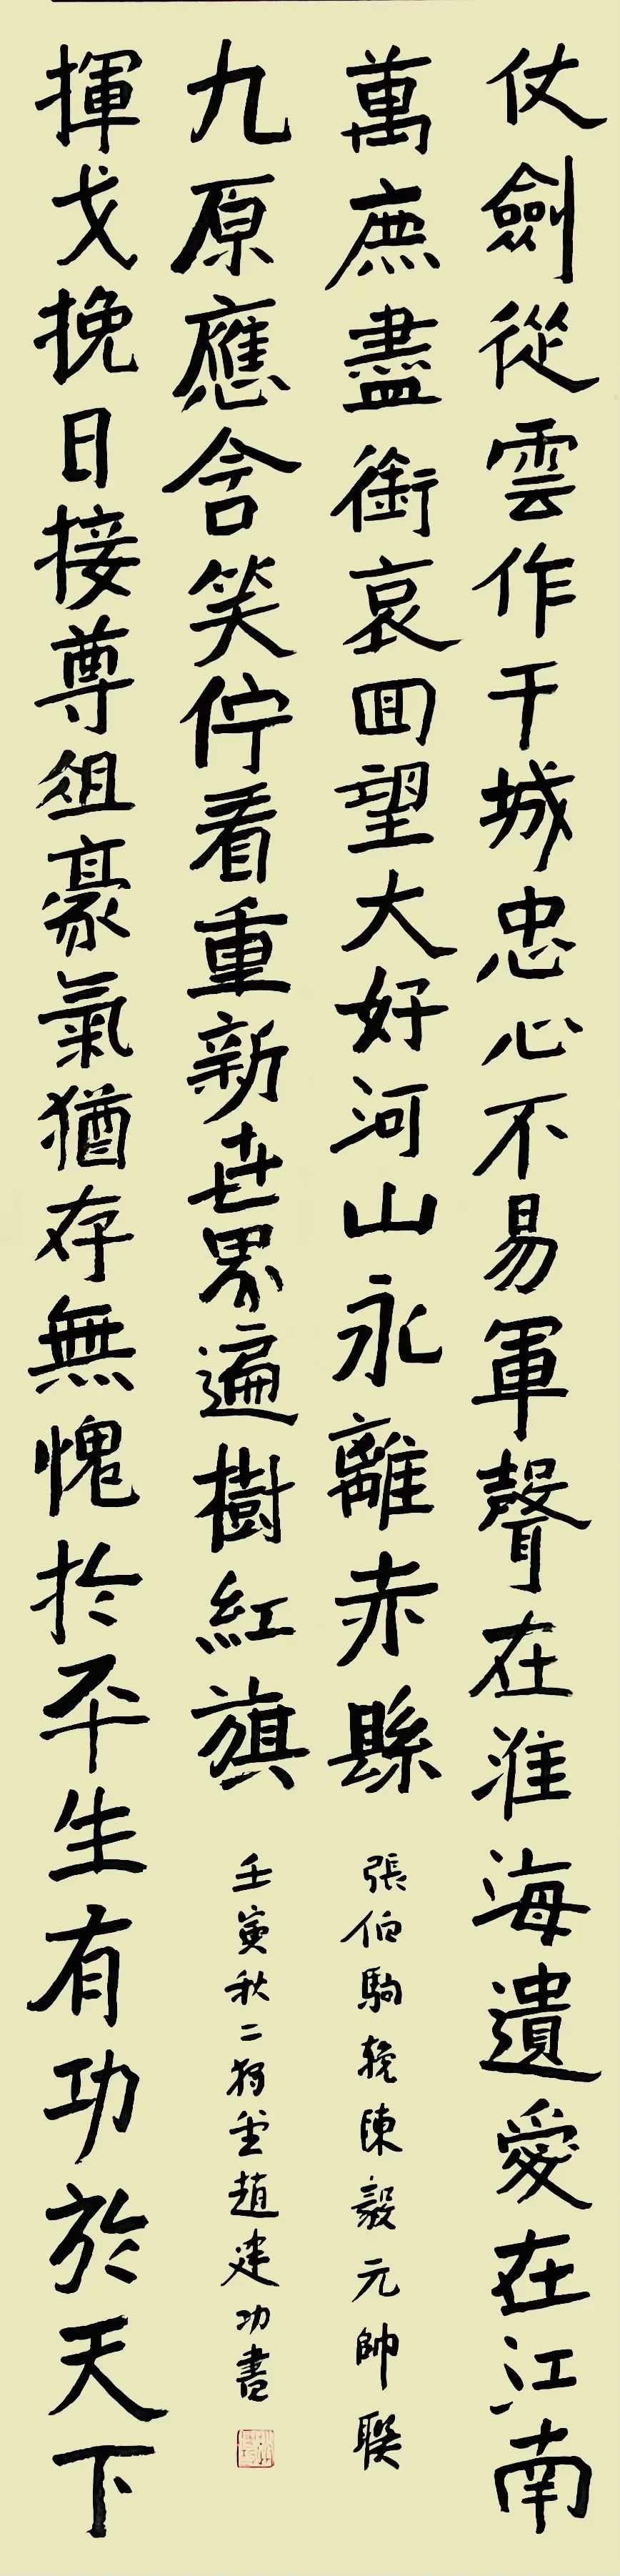 仗劍從雲作干城忠心不易軍聲在淮海遺愛在江南
萬庶盡銜哀回望大好河山永離赤縣
張伯駒輓陳毅元帥聯
揮戈挽日接尊俎豪氣猶存無愧於平生有功於天下
九原應含笑佇看重新世界遍樹紅旗
壬寅秋二堂趙建功書